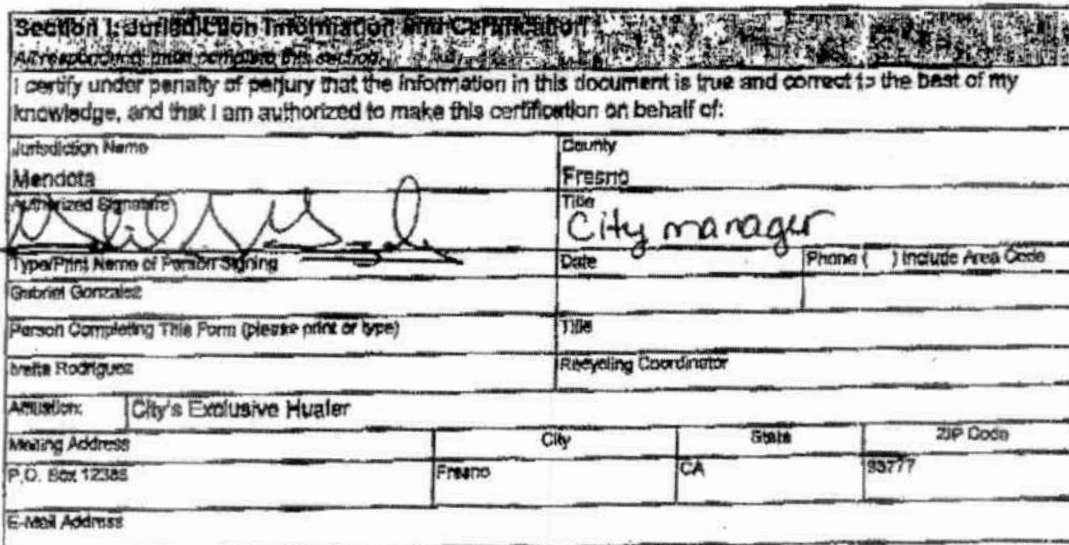 Section I: Jurisdiction Information and Certification
All respondents must complete this section.
I certify under penalty of perjury that the information in this document is true and correct to the best of my
knowledge, and that I am authorized to make this certification on behalf of:
Jurisdiction Name County
Mendota Fresno
Authorized Signature Title
City manager
Type/Print Name of Person Signing Date Phone ( ) Include Area Code
Gabriel Gonzalez
Person Completing This Form (please print or type) Title
Rodriguez Recycling Coordinator
Affiliation: City's Exclusive Hualer
Mailing Address City State ZIP Code
P.O. Box Fresno CA 93777
E-Mail Address